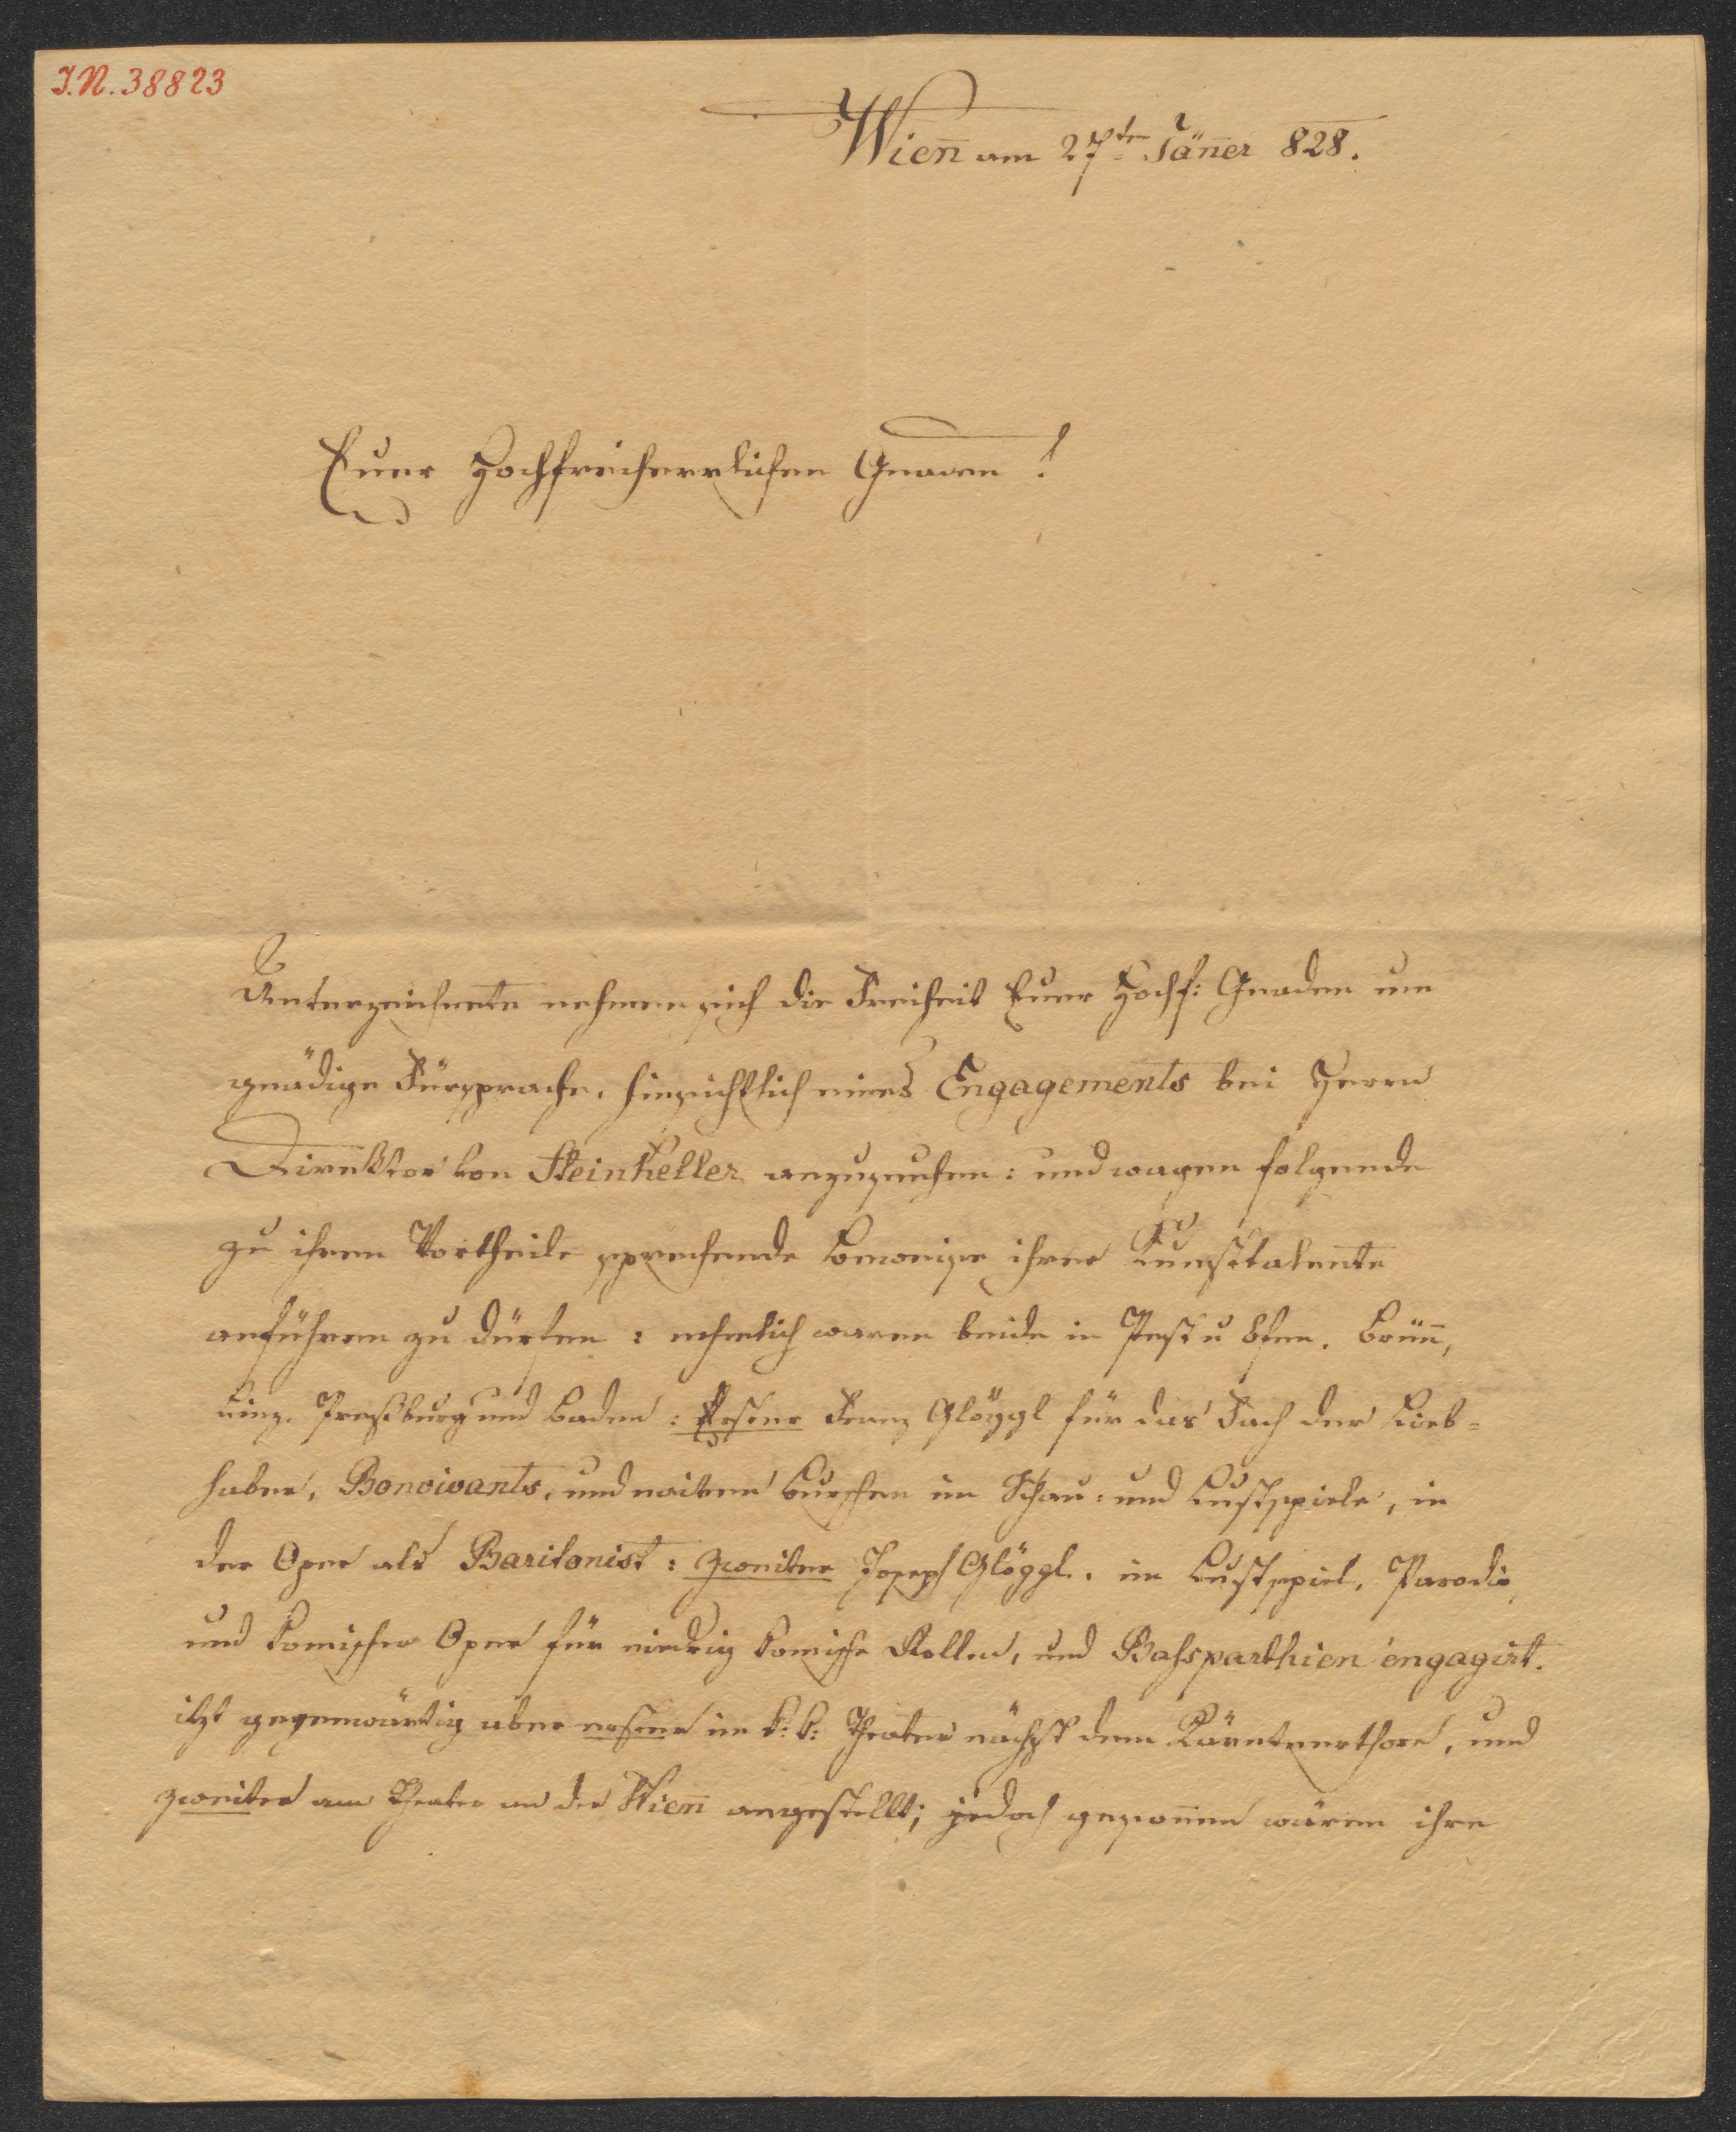 I.N. 38823
Wien̄ am 27ten Jän̄er 828.
Euer Hochfreiherrlichen Gnaden!
Unterzeichnete nehmen sich die Freiheit Euer Hochf: Gnaden um
gnädige Fürsprache, hinsichtlich eines Engagements bei Herrn
Direktor von Steinkeller anzusuchen: und wagen folgende
zu ihrem Vortheile sprechende Beweise ihrer Kunsttalente
anführen zu dürfen: nehmlich waren beide in Pest u Ofen, Brün̄,
Linz, Preßburg und Baden: Erster Franz Glöggl für das Fach der Lieb=
haber, Bonvivants, und naiven Burschen im Schau= und Lustspiele, in
der Oper als Baritonist: Zweiter Joseph Glöggl, im Lustspiel, Parodie,
und komischer Oper für niedrig komische Rollen, und Bassparthien engagirt.
itzt gegenwärtig aber erster im k: k: Theater nächst dem Kärntnerthore, und
zweiter am Theater an der Wien̄ angestellt; jedoch geson̄en wären ihre